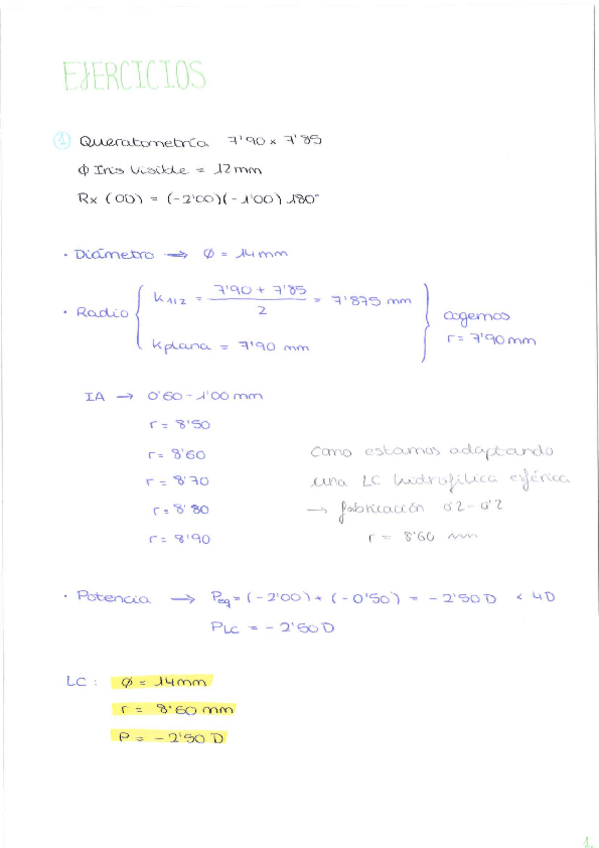 EJERCICIOS
1 Queratometría 7'90 x 7'85
Ø Iris visible = 12mm
Rx (OD) = (-2'00)(-1'00) 180°
• Diámetro → Ø = 14mm
• Radio
K1/2 = (7'90 + 7'85) / 2 = 7'875 mm
Kplana = 7'90 mm
cogemos
r = 7'90mm
IA → 0'60 - 1'00mm
r = 8'50
r = 8'60
r = 8'70
r = 8'80
r = 8'90
Como estamos adaptando
una LC hidrofílica esférica
→ fabricación 0'2-0'2
r = 8'60 mm
• Potencia → Peq = (-2'00) + (-0'50) = -2'50 D < 4D
PLC = -2'50D
LC: Ø = 14mm
r = 8'60 mm
P = -2'50 D
1.